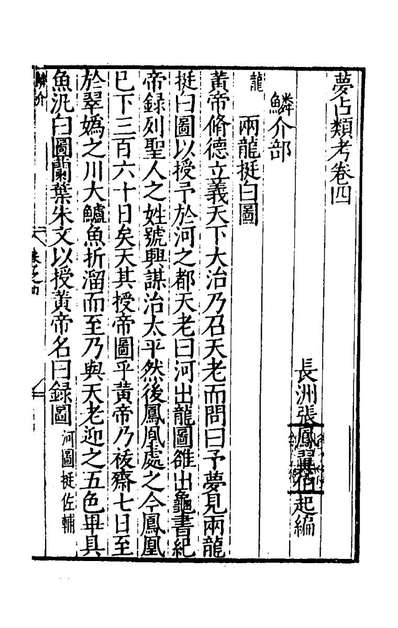 夢占類考卷四
長洲張鳳翼伯起編
鱗介部
龍
兩龍挺白圖
黃帝脩德立義天下大治乃召天老而問曰予夢見兩龍
挺白圖以授予於河之都天老曰河出龍圖雒出龜書紀
帝錄列聖人之姓號興謀治太平然後鳳凰處之今鳳凰
已下三百六十日矣天其授帝圖乎黃帝乃祓齋七日至
於翠嬀之川大鱸魚折溜而至乃與天老迎之五色畢具
魚汎白圖蘭葉朱文以授黃帝名曰錄圖 河圖挺佐輔
鱗介
卷之四